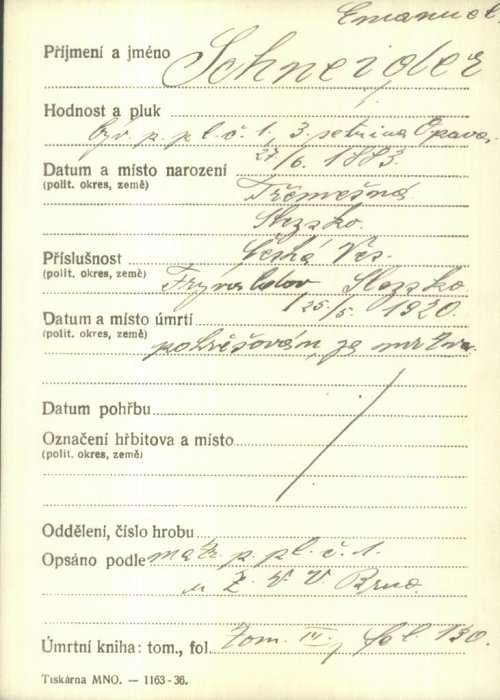 Emanuel
Příjmení a jméno Schneider
Hodnost a pluk
býv. p. pl. č. 1, 3. setnina Opava.
Datum a místo narození 27/6. 1883.
(polit. okres, země) Třemešná
Slezsko.
Příslušnost Česká Ves.
(polit. okres, země) Frývaldov Slezsko.
Datum a místo úmrtí 25/5. 1920.
(polit. okres, země) pohřešován, za mrtva.
Datum pohřbu
Označení hřbitova a místo
(polit. okres, země)
Oddělení, číslo hrobu
Opsáno podle matr. p. pl. č. 1.
u Z. V. V. Brno.
Úmrtní kniha: tom., fol. Tom. IV, fol. 130.
Tiskárna MNO. — 1163-36.